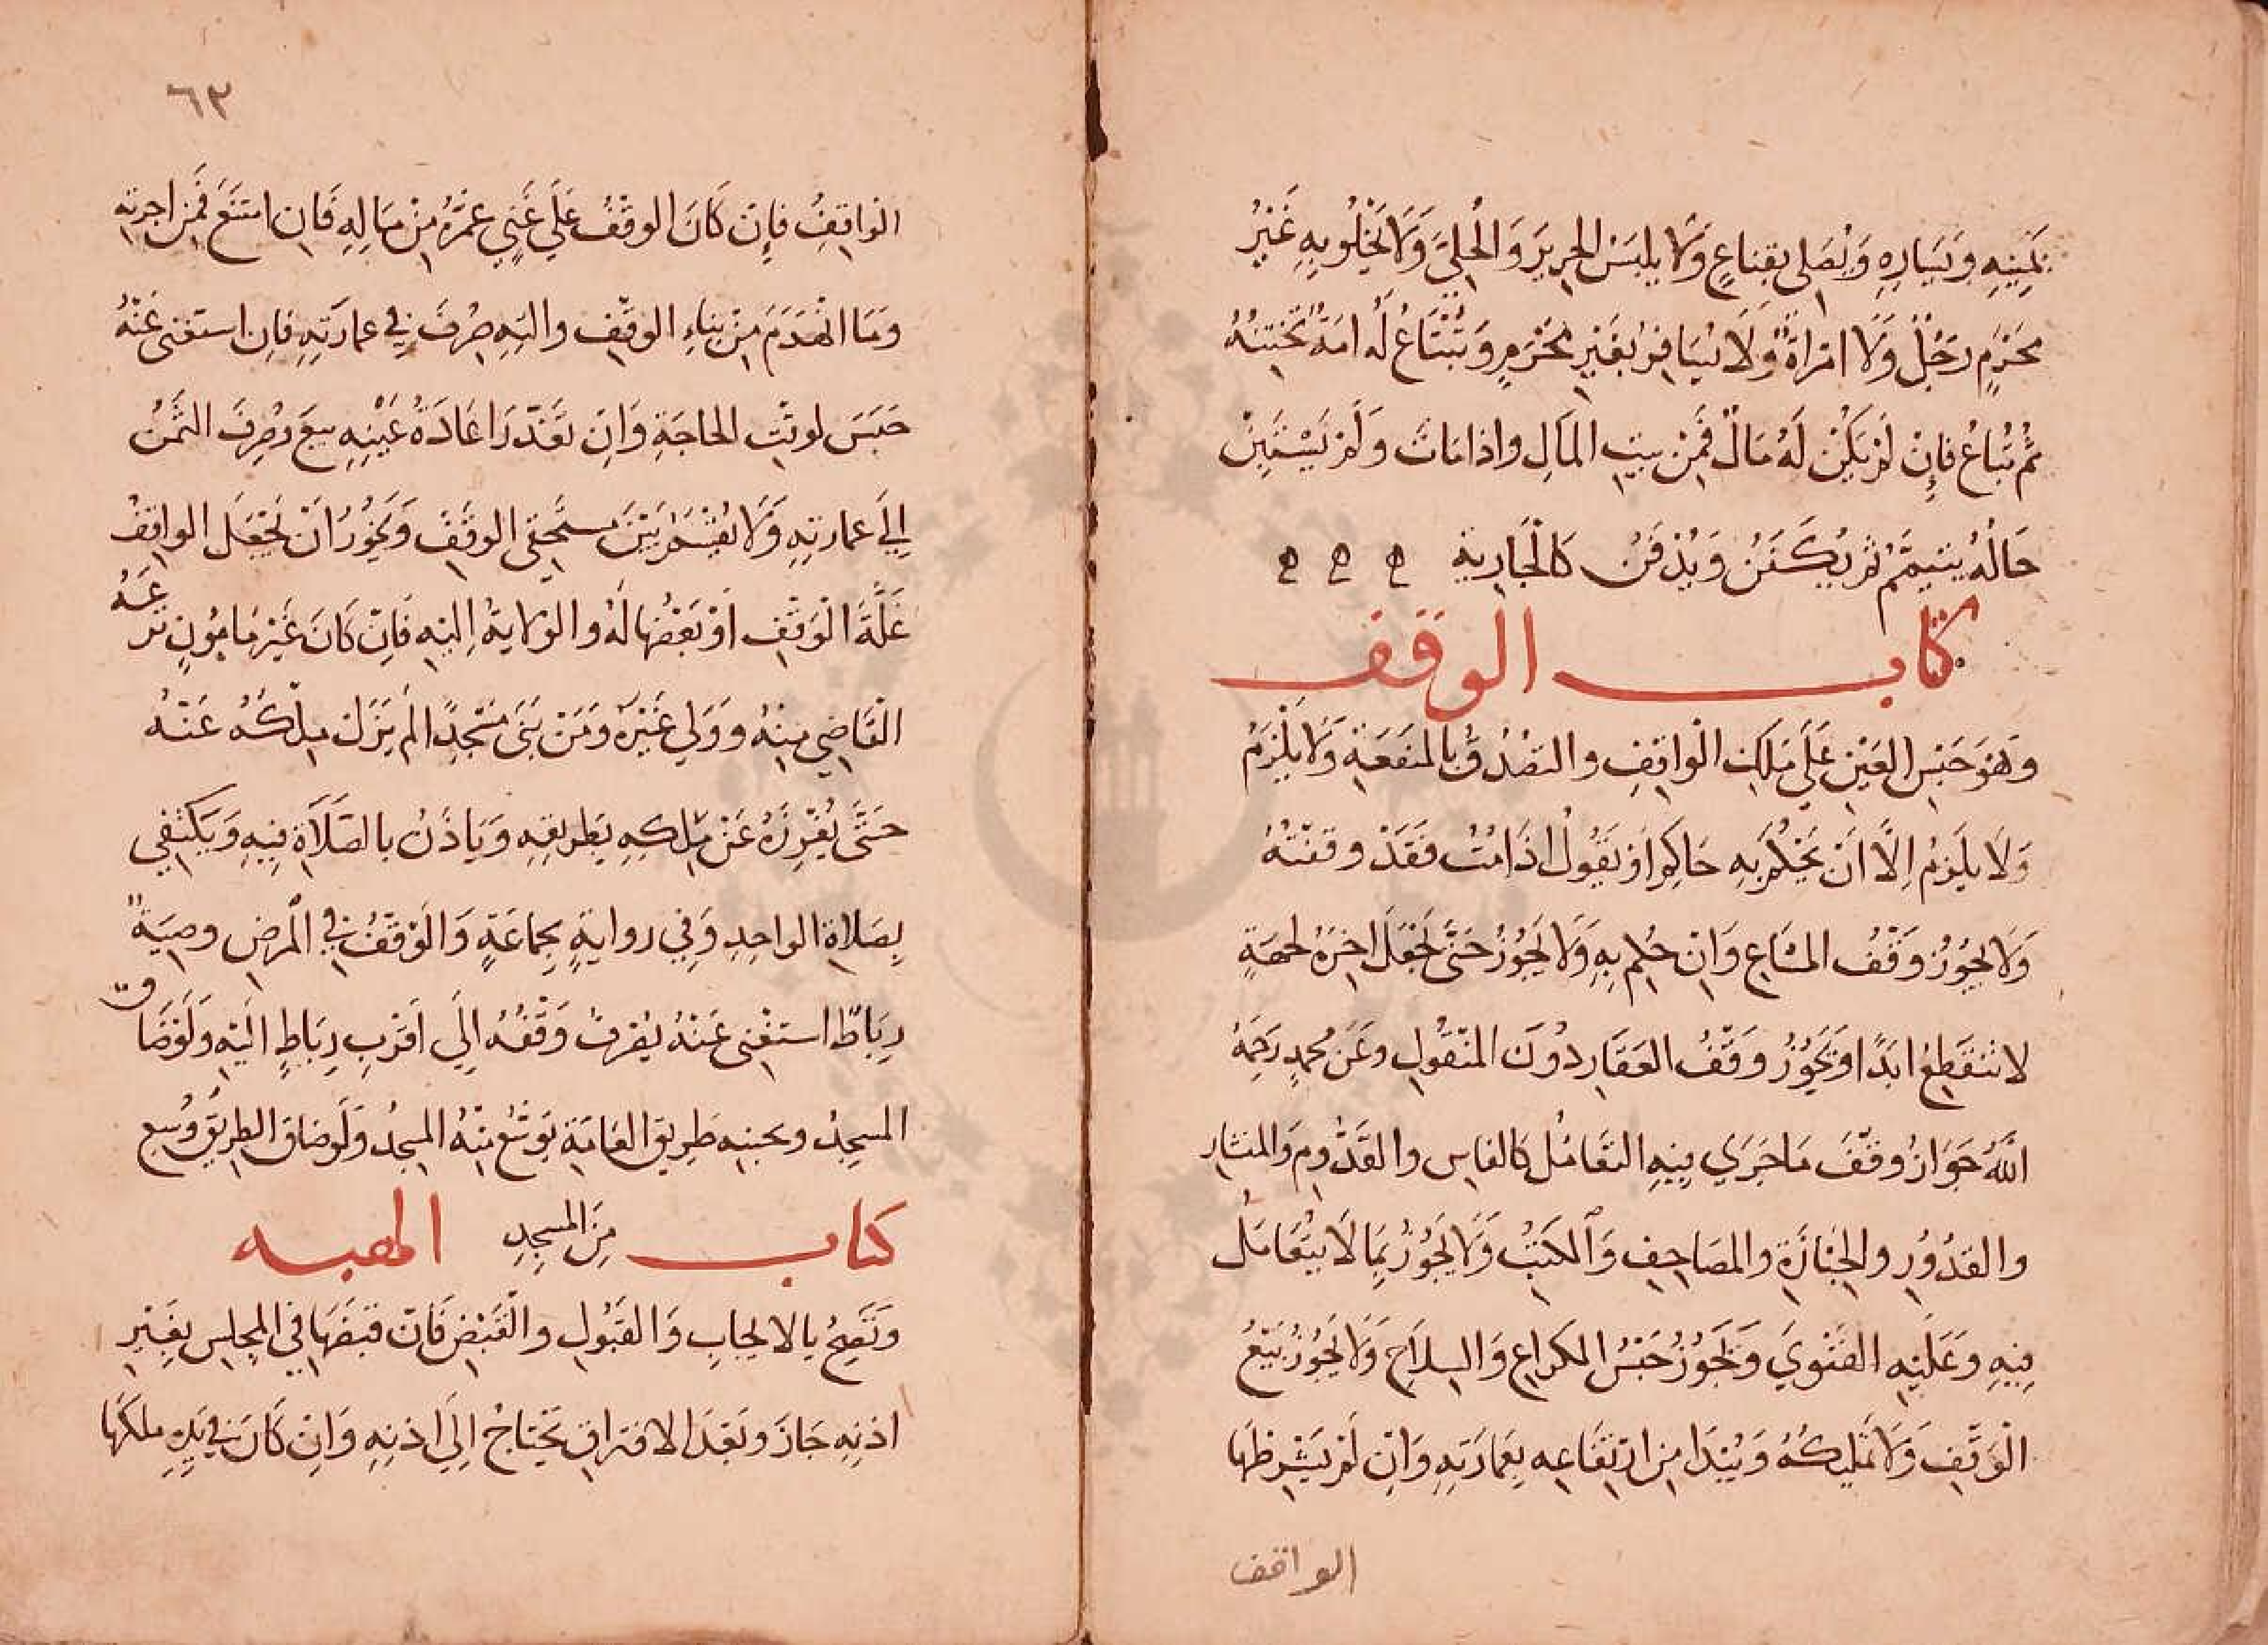 بيمينه ويساره ويصلي بقناع ولا يلبس الحرير والحلي ولا يخلو به غير
محرم رجل ولا امراة ولا يسافر بغير محرم وتبتاع له امة تختنه
ثم تباع فان لم يكن له مال فمن بيت المال واذا مات ولم يستبن
حاله يتيمم ثم يكفن ويدفن كالجارية ه ه ه
كتاب الوقف
وهو حبس العين علي ملك الواقف والتصدق بالمنفعة ولا يلزم
ولا يلزم الا ان يحكم به حاكم او يقول اذا مت فقد وقفته
ولا يجوز وقف المشاع وان حكم به ولا يجوز حتي يجعل اخره لجهة
لا تنقطع ابدا ويجوز وقف العقار دون المنقول وعن محمد رحمه
الله جواز وقف ما جري فيه التعامل كالفاس والقدوم والمنشار
والقدور والجنازة والمصاحف والكتب ولا يجوز بما لا يتعامل
فيه وعليه الفتوي ويجوز حبس الكراع والسلاح ولا يجوز بيع
الوقف ولا تمليكه ويبدا من ارتفاعه بعمارته وان لم يشرطها
الواقف
٦٣
الواقف فان كان الوقف علي غني عمره من ماله فان امتنع فمن اجرته
وما انهدم من بناء الوقف والته صرف في عمارته فان استغني عنه
حبس لوقت الحاجة وان تعذر اعادة عينه بيع وصرف الثمن
الي عمارته ولا يقسم بين مستحقي الوقف ويجوز ان يجعل الواقف
غلة الوقف او بعضها له والولاية اليه فان كان غير مامون نزعه
القاضي منه وولي غيره ومن بني مسجدا لم يزل ملكه عنه
حتي يفرزه عن ملكه بطريقه وياذن بالصلاة فيه ويكتفي
بصلاة الواحد وفي رواية بجماعة والوقف في المرض وصية
رباط استغني عنه يصرف وقفه الي اقرب رباط اليه ولو ضاق
المسجد وبجنبه طريق العامة يوسع منه المسجد ولو ضاق الطريق وسع
من المسجد
كتاب الهبه
وتصح بالايجاب والقبول والقبض فان قبضها في المجلس بغير
اذنه جاز وبعد الافتراق يحتاج الي اذنه وان كان في يده ملكها